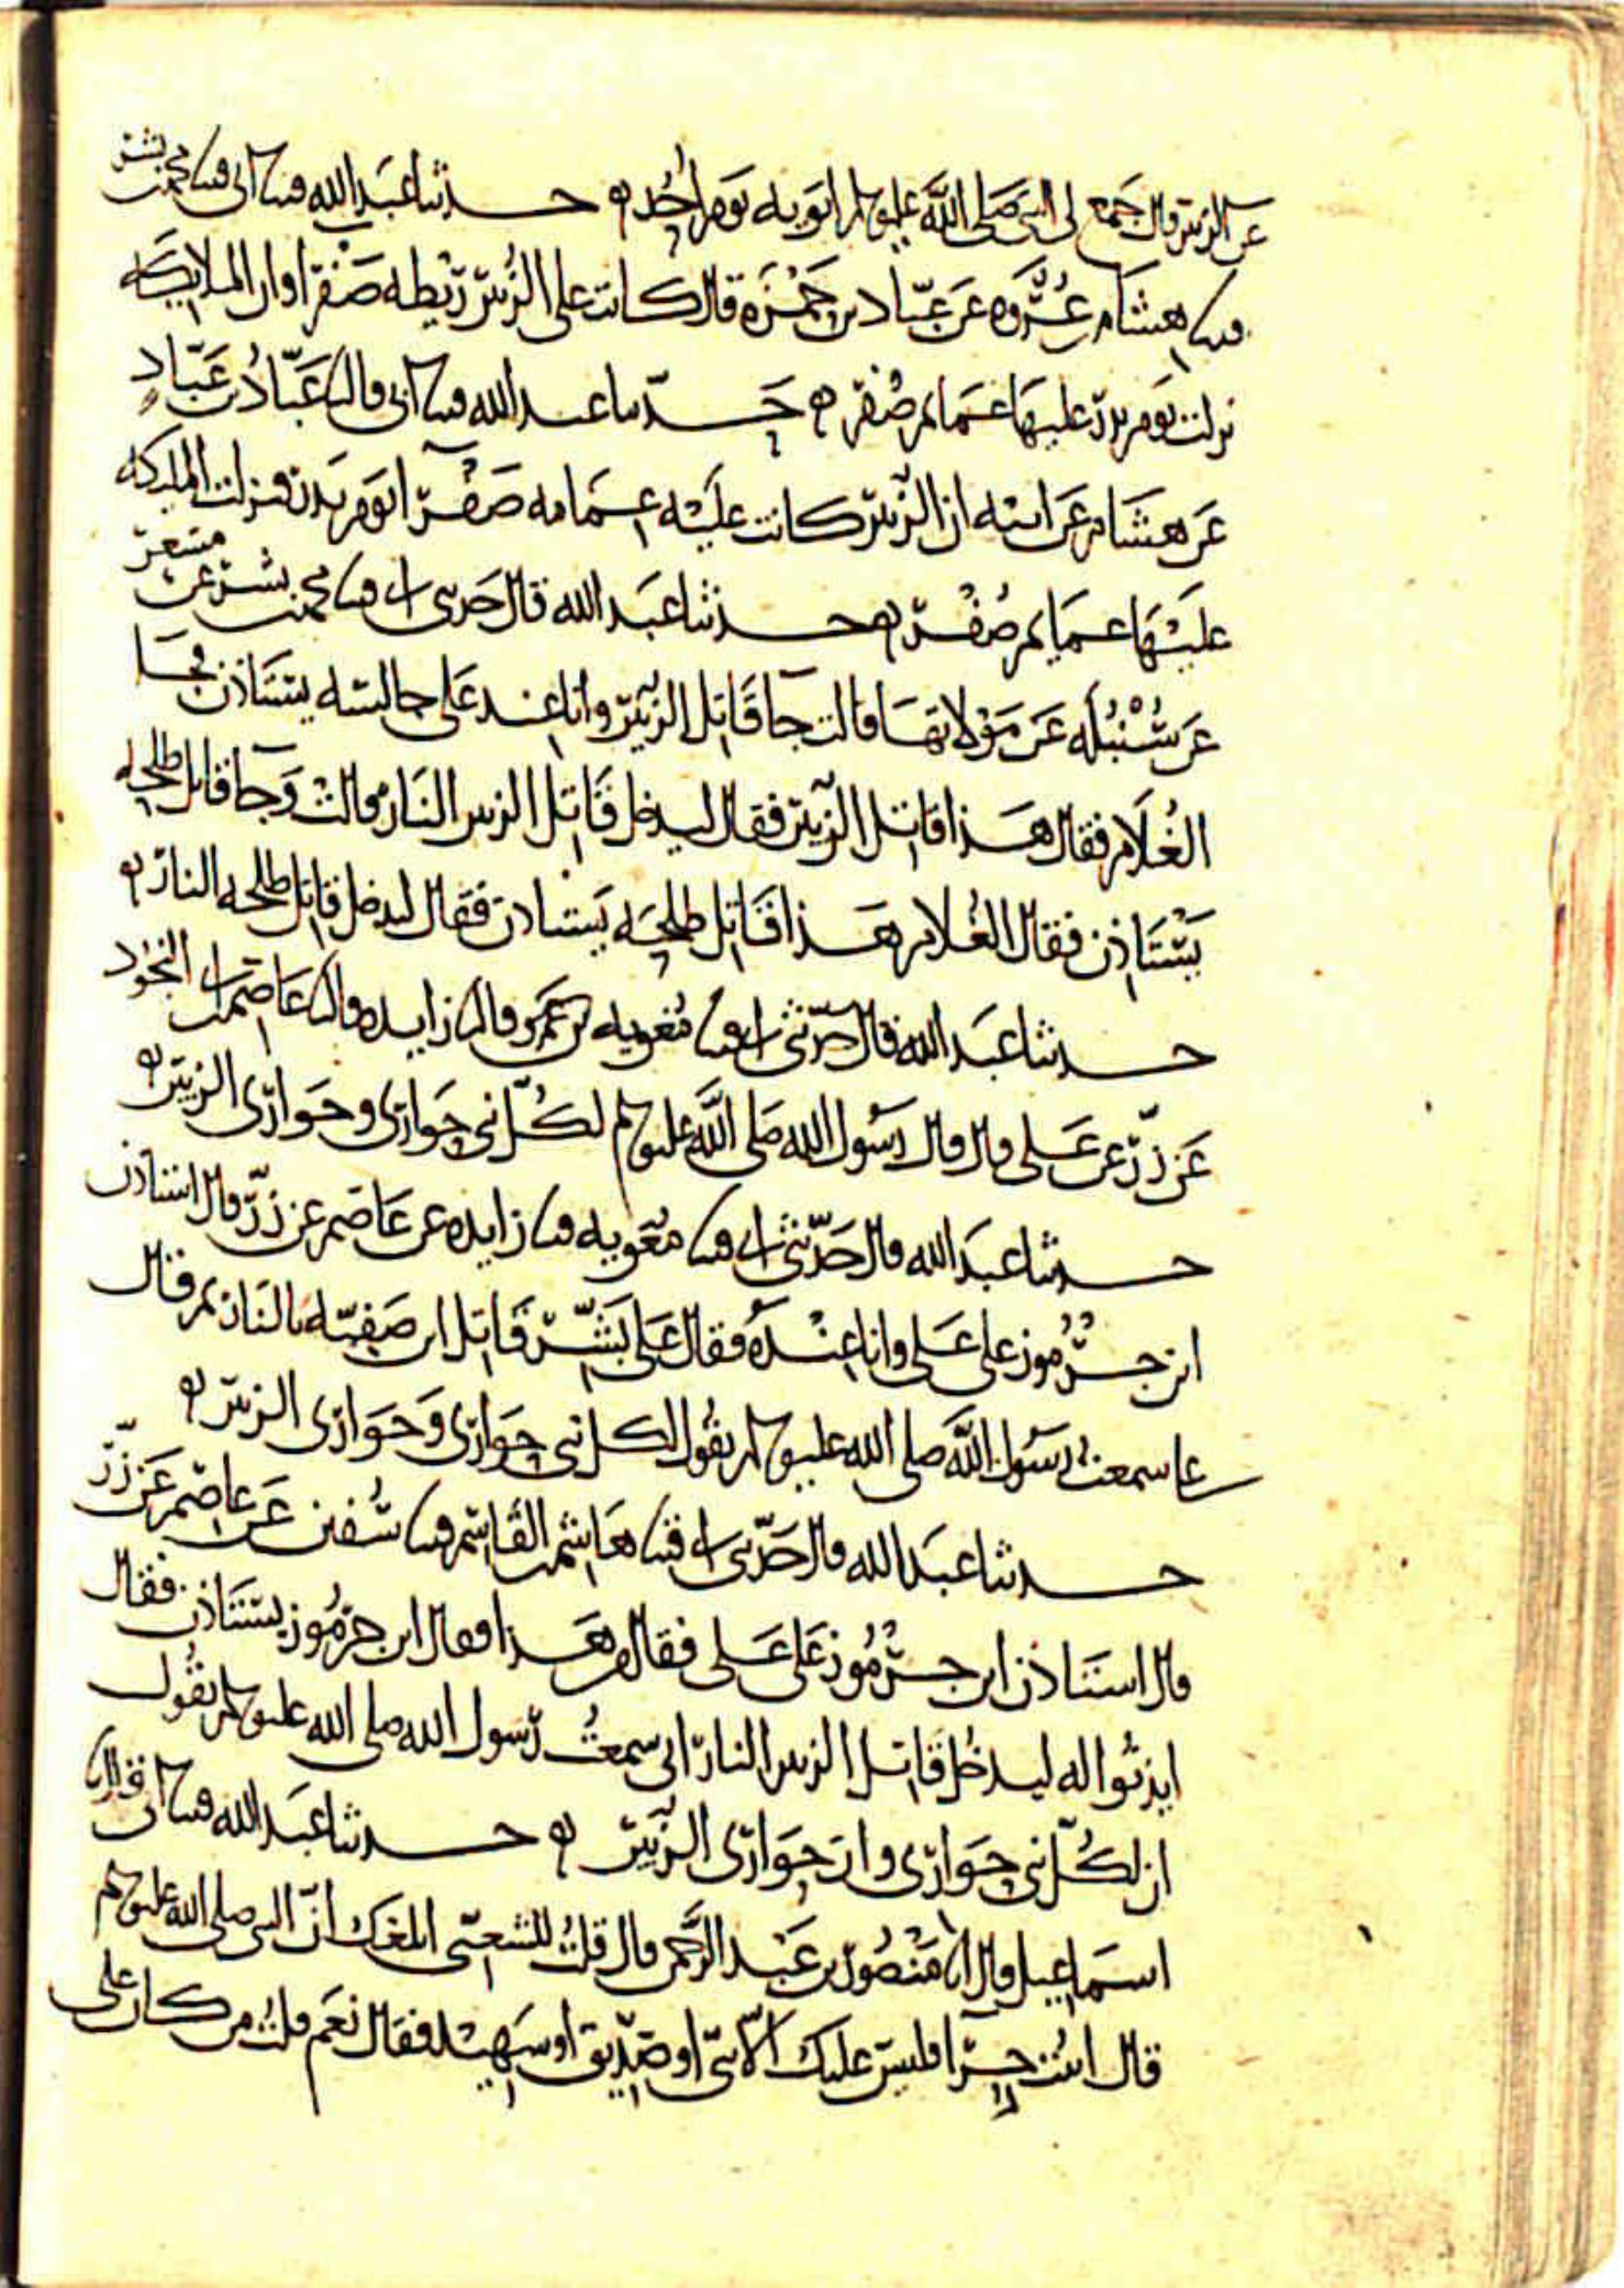 عن الزبير قال جمع لى النبى صلى الله عليه وسلم ابويه يوم احد ه حدثنا عبد الله قثنا ابى قثنا محمد بن بشر
قثنا هشام بن عروه عن عباد بن حمزه قال كانت على الزبير ريطه صفرا وان الملايكه
نزلت يوم بدر عليها عمايم صفر ه حدثنا عبد الله قثنا ابى قال نا عباد بن عباد
عن هشام عن ابيه ان الزبير كانت عليه عمامه صفرا يوم بدر فنزلت الملئكه
عليها عمايم صفر ه حدثنا عبد الله قال حدثنى ابى قثنا محمد بن بشر عن مسعر
عن سنبله عن مولاتها قالت جا قاتل الزبير وانا عند على جالسه يستاذن فجا
الغلام فقال هذا قاتل الزبير فقال ليدخل قاتل الزبير النار قالت وجا قاتل طلحه
يستاذن فقال الغلام هذا قاتل طلحه يستاذن فقال ليدخل قاتل طلحه النار ه
حدثنا عبد الله قال حدثنى ابى قثنا معويه بن عمرو قال نا زايده قال نا عاصم بن ابى النجود
عن زر عن على قال قال رسول الله صلى الله عليه وسلم لكل نبى حوارى وحوارى الزبير ه
حدثنا عبد الله قال حدثنى ابى قثنا معويه قثنا زايده عن عاصم عن زر قال استاذن
ابن جرموز على على وانا عنده فقال على بشر قاتل ابن صفيه بالنار ثم قال
على سمعت رسول الله صلى الله عليه وسلم يقول لكل نبى حوارى وحوارى الزبير ه
حدثنا عبد الله قال حدثنى ابى قثنا هاشم بن القاسم قثنا سفين عن عاصم عن زر
قال استاذن ابن جرموز على على فقال من هذا فقال ابن جرموز يستاذن فقال
ايذنوا له ليدخل قاتل الزبير النار انى سمعت رسول الله صلى الله عليه وسلم يقول
ان لكل نبى حوارى وان حوارى الزبير ه حدثنا عبد الله قثنا ابى قال نا
اسماعيل قال انا منصور بن عبد الرحمن قال قلت للشعبى ابلغك ان النبى صلى الله عليه وسلم
قال اثبت حرا فليس عليك الا نبى او صديق او شهيد فقال نعم قلت من كان على